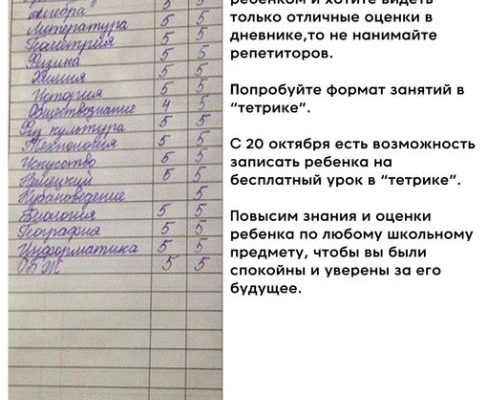 Алгебра 5 5
Литература 5 5
Геометрия 5 5
Физика 5 5
Химия 5 5
История 5 5
Обществознание 4 5
Физ культура 5 5
Технология 5 5
Искусство 5 5
Немецкий 5 5
Кубановедение 5
Биология 5 5
География 5 5
Информатика 5 5
ОБЖ 5 5
ребенком и хотите видеть
только отличные оценки в
дневнике,то не нанимайте
репетиторов.
Попробуйте формат занятий в
“тетрике”.
С 20 октября есть возможность
записать ребенка на
бесплатный урок в “тетрике”.
Повысим знания и оценки
ребенка по любому школьному
предмету, чтобы вы были
спокойны и уверены за его
будущее.